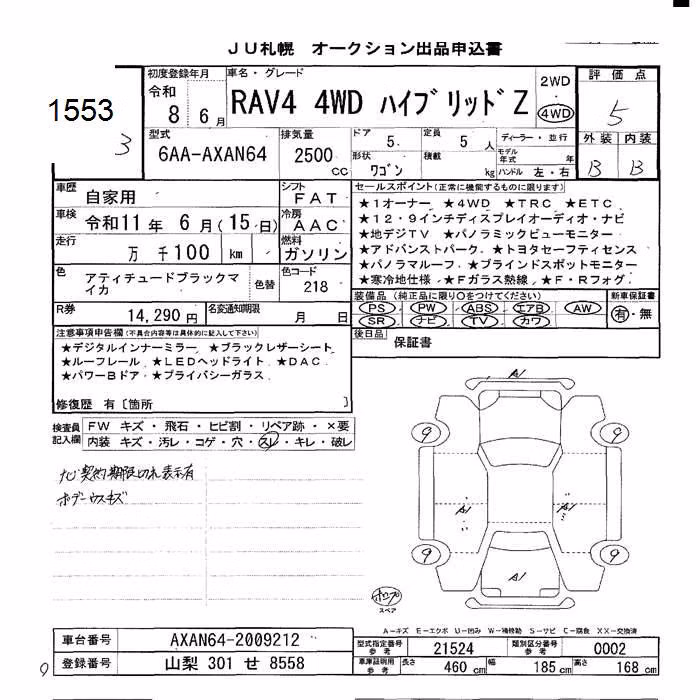 JU札幌 オークション出品申込書
1553
3
初度登録年月
令和
8 6月
車名・グレード
RAV4 4WD ハイブリッドZ
2WD
4WD
評価点
5
型式
6AA-AXAN64
排気量
2500
cc
ドア
5.
定員
5人
形状
ワゴン
積載
kg
ディーラー・並行
モデル年式 年
ハンドル 左・右
外装 内装
B B
車歴
自家用
シフト
FAT
車検
令和11年 6月(15日)
冷房
AAC
走行
万 千100 km
燃料
ガソリン
色
アティチュードブラックマイカ
色替
色コード
218
R券
14,290円
名変通知期限
月 日
セールスポイント(正常に機能するものに限ります)
★1オーナー ★4WD ★TRC ★ETC
★12・9インチディスプレイオーディオ・ナビ
★地デジTV ★パノラミックビューモニター
★アドバンストパーク ★トヨタセーフティセンス
★パノラマルーフ ★ブラインドスポットモニター
★寒冷地仕様 ★Fガラス熱線 ★F・Rフォグ
装備品(純正品に限り○をつけてください)
PS PW ABS エアB AW
SR ナビ TV カワ
新車保証書
有・無
後日品
保証書
注意事項申告欄(不具合内容等は具体的に記入して下さい)
★デジタルインナーミラー ★ブラックレザーシート
★ルーフレール ★LEDヘッドライト ★DAC
★パワーBドア ★プライバシーガラス
修復歴 有〔箇所 〕
検査員記入欄
FW キズ・飛石・ヒビ割・リペア跡・×要
内装 キズ・汚レ・コゲ・穴・スレ・キレ・破レ
ナビ契約期限切れ表示有
ボデーウスキズ
A1
9 9
A1 A1
9 9
A1
スペア
A-キズ E-エクボ U-凹み W-補修跡 S-サビ C-腐食 XX-交換済
車台番号
AXAN64-2009212
登録番号
山梨 301 せ 8558
9
型式指定番号
参考
21524
類別区分番号
参考
0002
車庫証明用
参考
長さ
460cm
幅
185cm
高さ
168cm